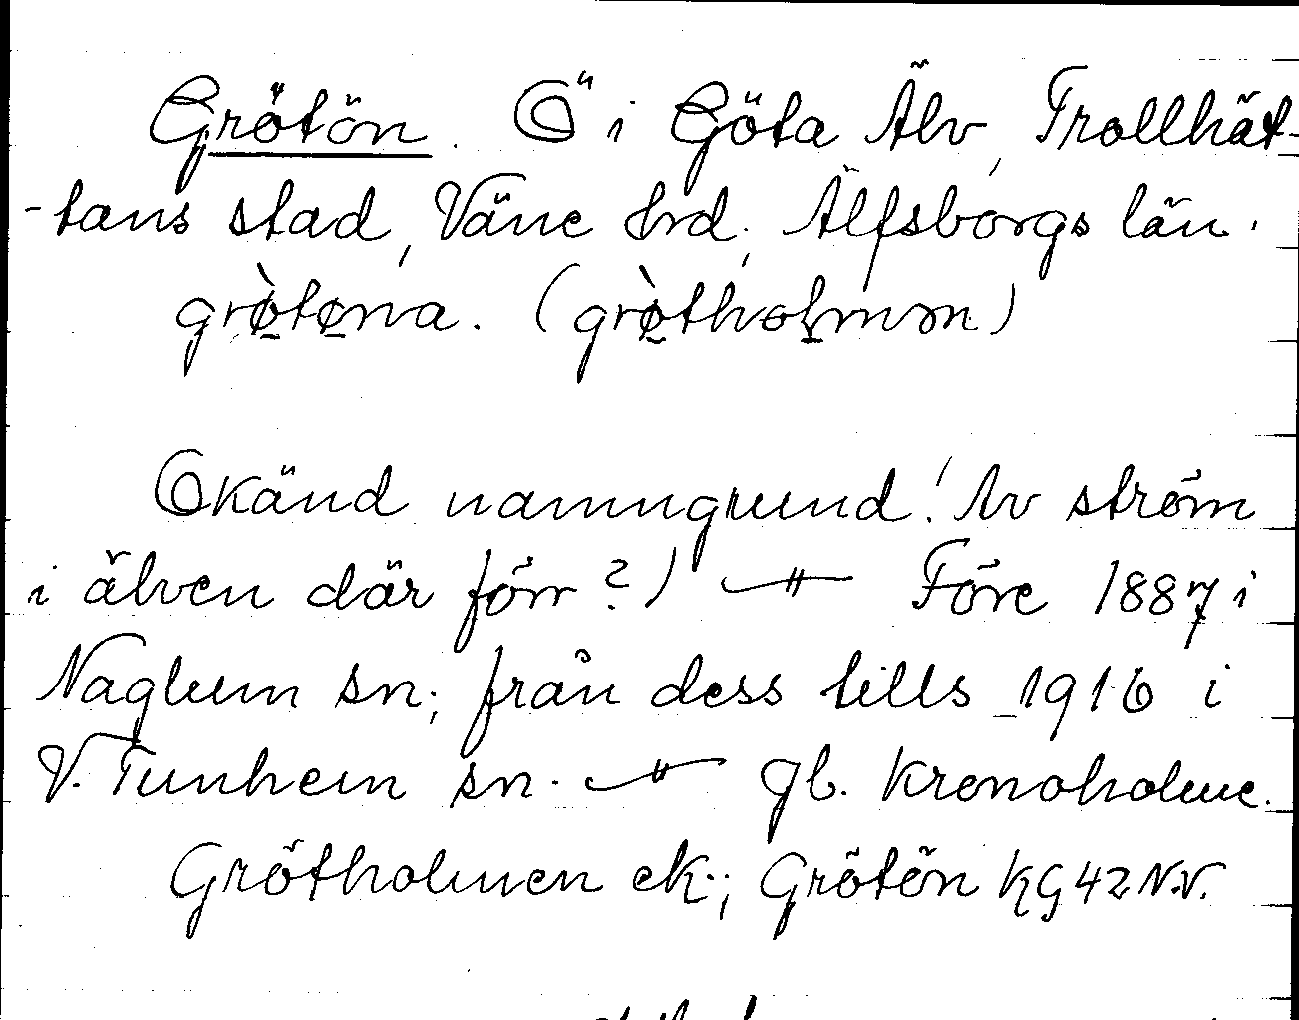 Grötön. Ö i Göta Älv, Trollhät-
-tans stad, Väne hrd., Älfsborgs län.
grø̀tøna. (grø̀tholmæn)
Okänd namngrund! Av ström
i älven där förr?) Före 1887 i
Naglum sn; från dess tills 1916 i
V. Tunhem sn. gl. kronoholme.
Grötholmen ek.; Grötön KG 42 N.V.